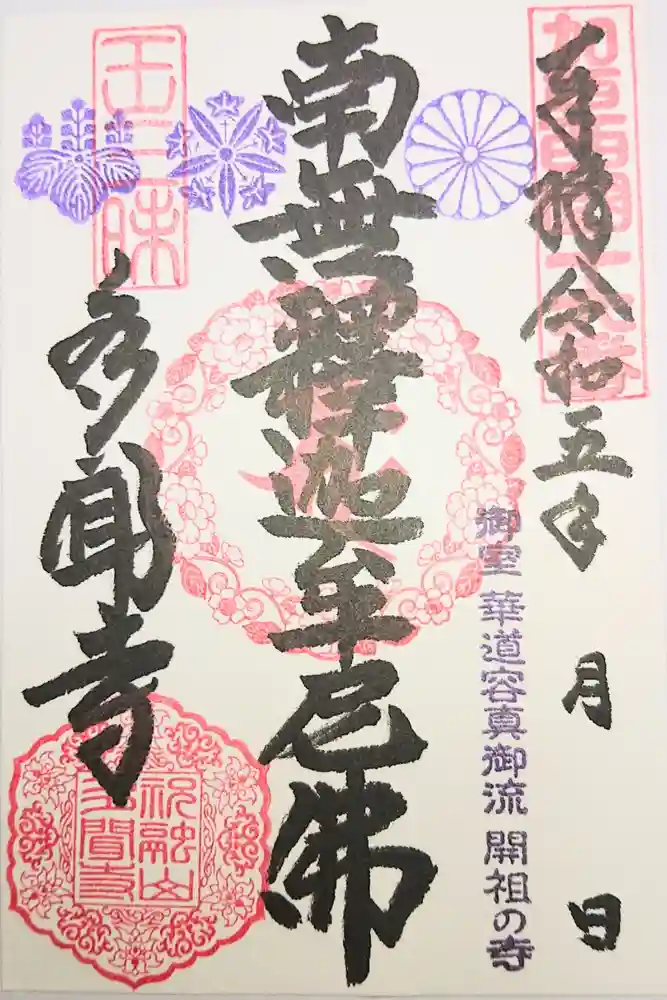 奉拝 令和五年 月 日
御室 華道容真御流 開祖の寺
南無釋迦牟尼佛
王三昧
多聞寺
祝融山
多聞寺